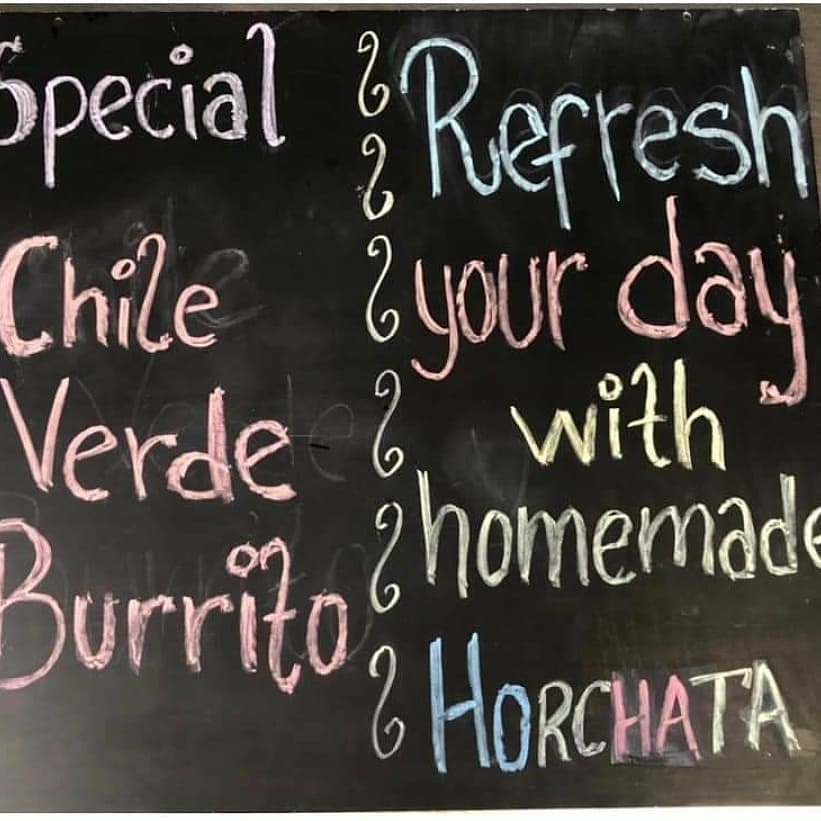 Special
Chile
Verde
Burrito
Refresh
your day
with
homemade
HORCHATA